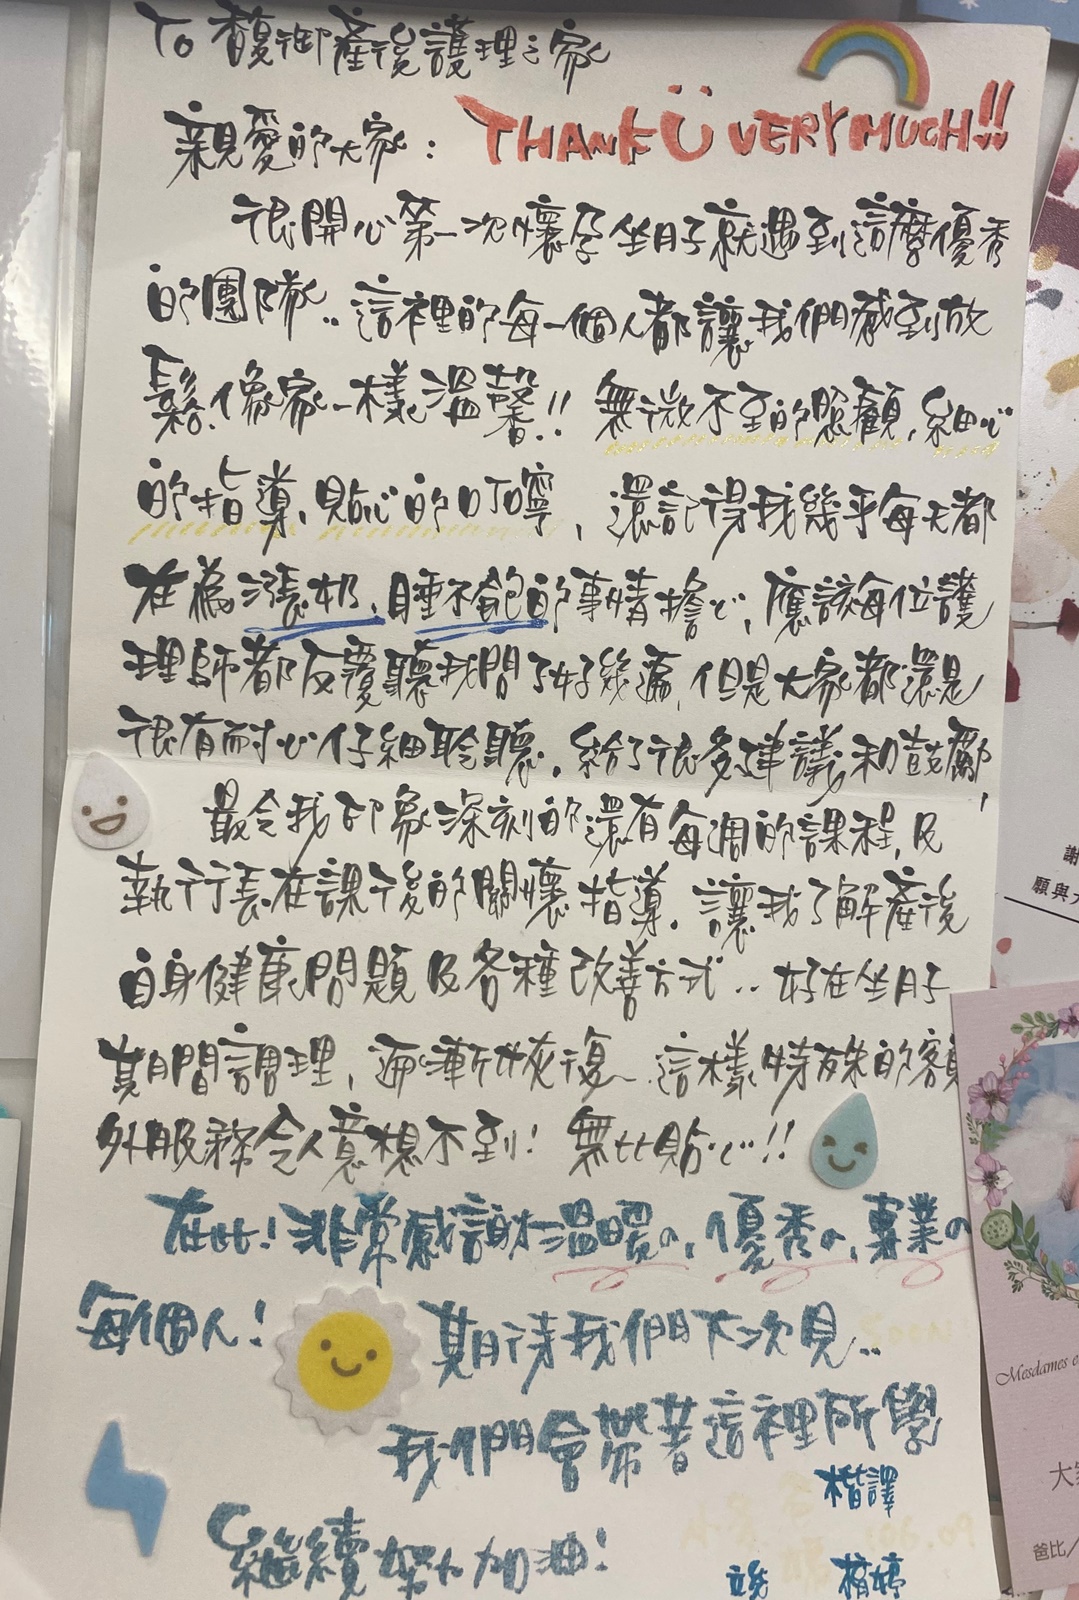 To 馥御產後護理之家
親愛的大家：
THANK U VERY MUCH!!
很開心第一次懷孕坐月子就遇到這麼優秀
的團隊..這裡的每一個人都讓我們感到放
鬆,像家一樣溫馨!! 無微不至的照顧,細心
的指導,貼心的叮嚀，還記得我幾乎每天都
在為漲奶、睡不飽的事情擔心,應該每位護
理師都反覆聽我問了好幾遍,但是大家都還是
很有耐心仔細聆聽,給了很多建議和鼓勵,
最令我印象深刻的還有每週的課程,及
執行長在課後的關懷指導,讓我了解產後
自身健康問題及各種改善方式..好在坐月子
期間調理,逐漸恢復 這樣特殊的額
外服務令人意想不到! 無比貼心!!
在此!非常感謝溫暖の,優秀の,專業の
每個人!
期待我們下次見..
我們會帶著這裡所學
繼續努力加油!
楷譯
謝
願與
Mesdames e
大
爸比/